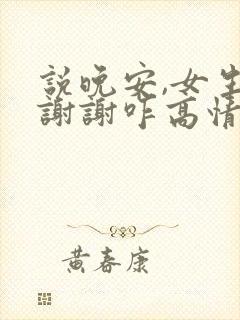 說晚安,女生
謝謝咋高情
黃春康